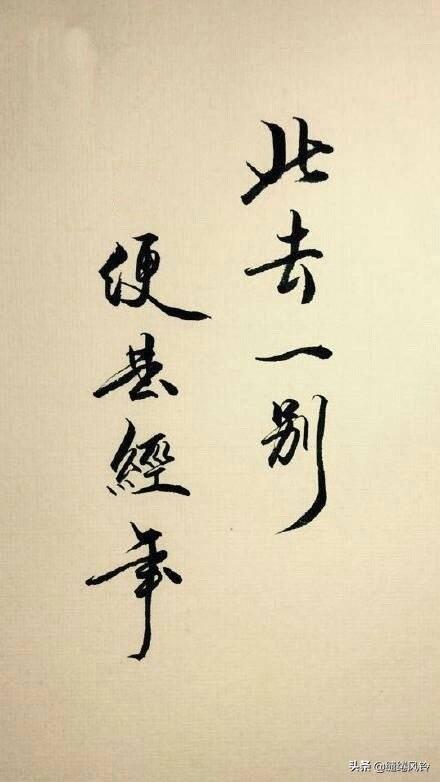 此去一别
便是經年
头条 @缱绻风铃